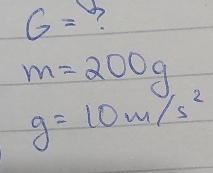 G = ?
m = 200g
g = 10m/s²